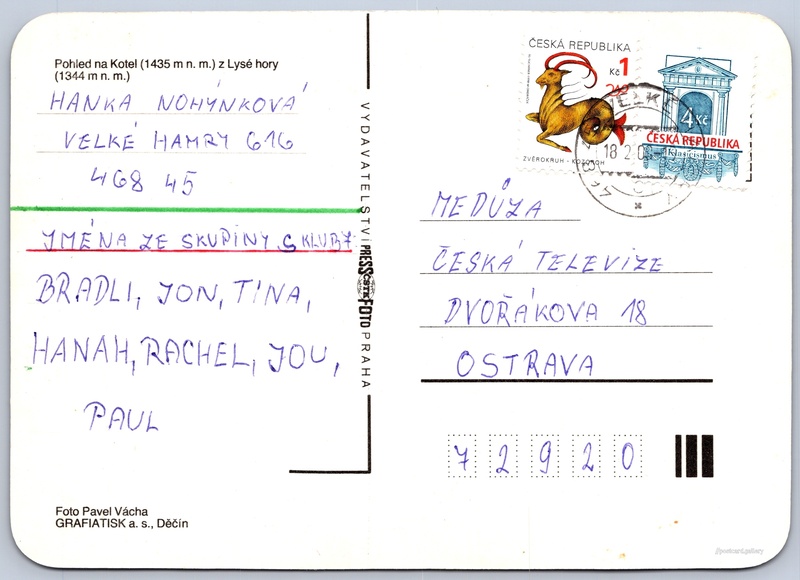 Pohled na Kotel (1435 m n. m.) z Lysé hory
(1344 m n. m.)
HANKA NOHÝNKOVÁ
VELKÉ HAMRY 616
468 45
JMÉNA ZE SKUPINY S KLUB 7
BRADLI, JON, TINA,
HANAH, RACHEL, JOU,
PAUL
Foto Pavel Vácha
GRAFIATISK a. s., Děčín
VYDAVATELSTVÍ PRESSFOTO PRAHA
ČESKÁ REPUBLIKA
Kč 1
ZVĚROKRUH - KOZOROH
4 Kč
ČESKÁ REPUBLIKA
Klasicismus
18 2 0
MEDŮZA
ČESKÁ TELEVIZE
DVOŘÁKOVA 18
OSTRAVA
7 2 9 2 0